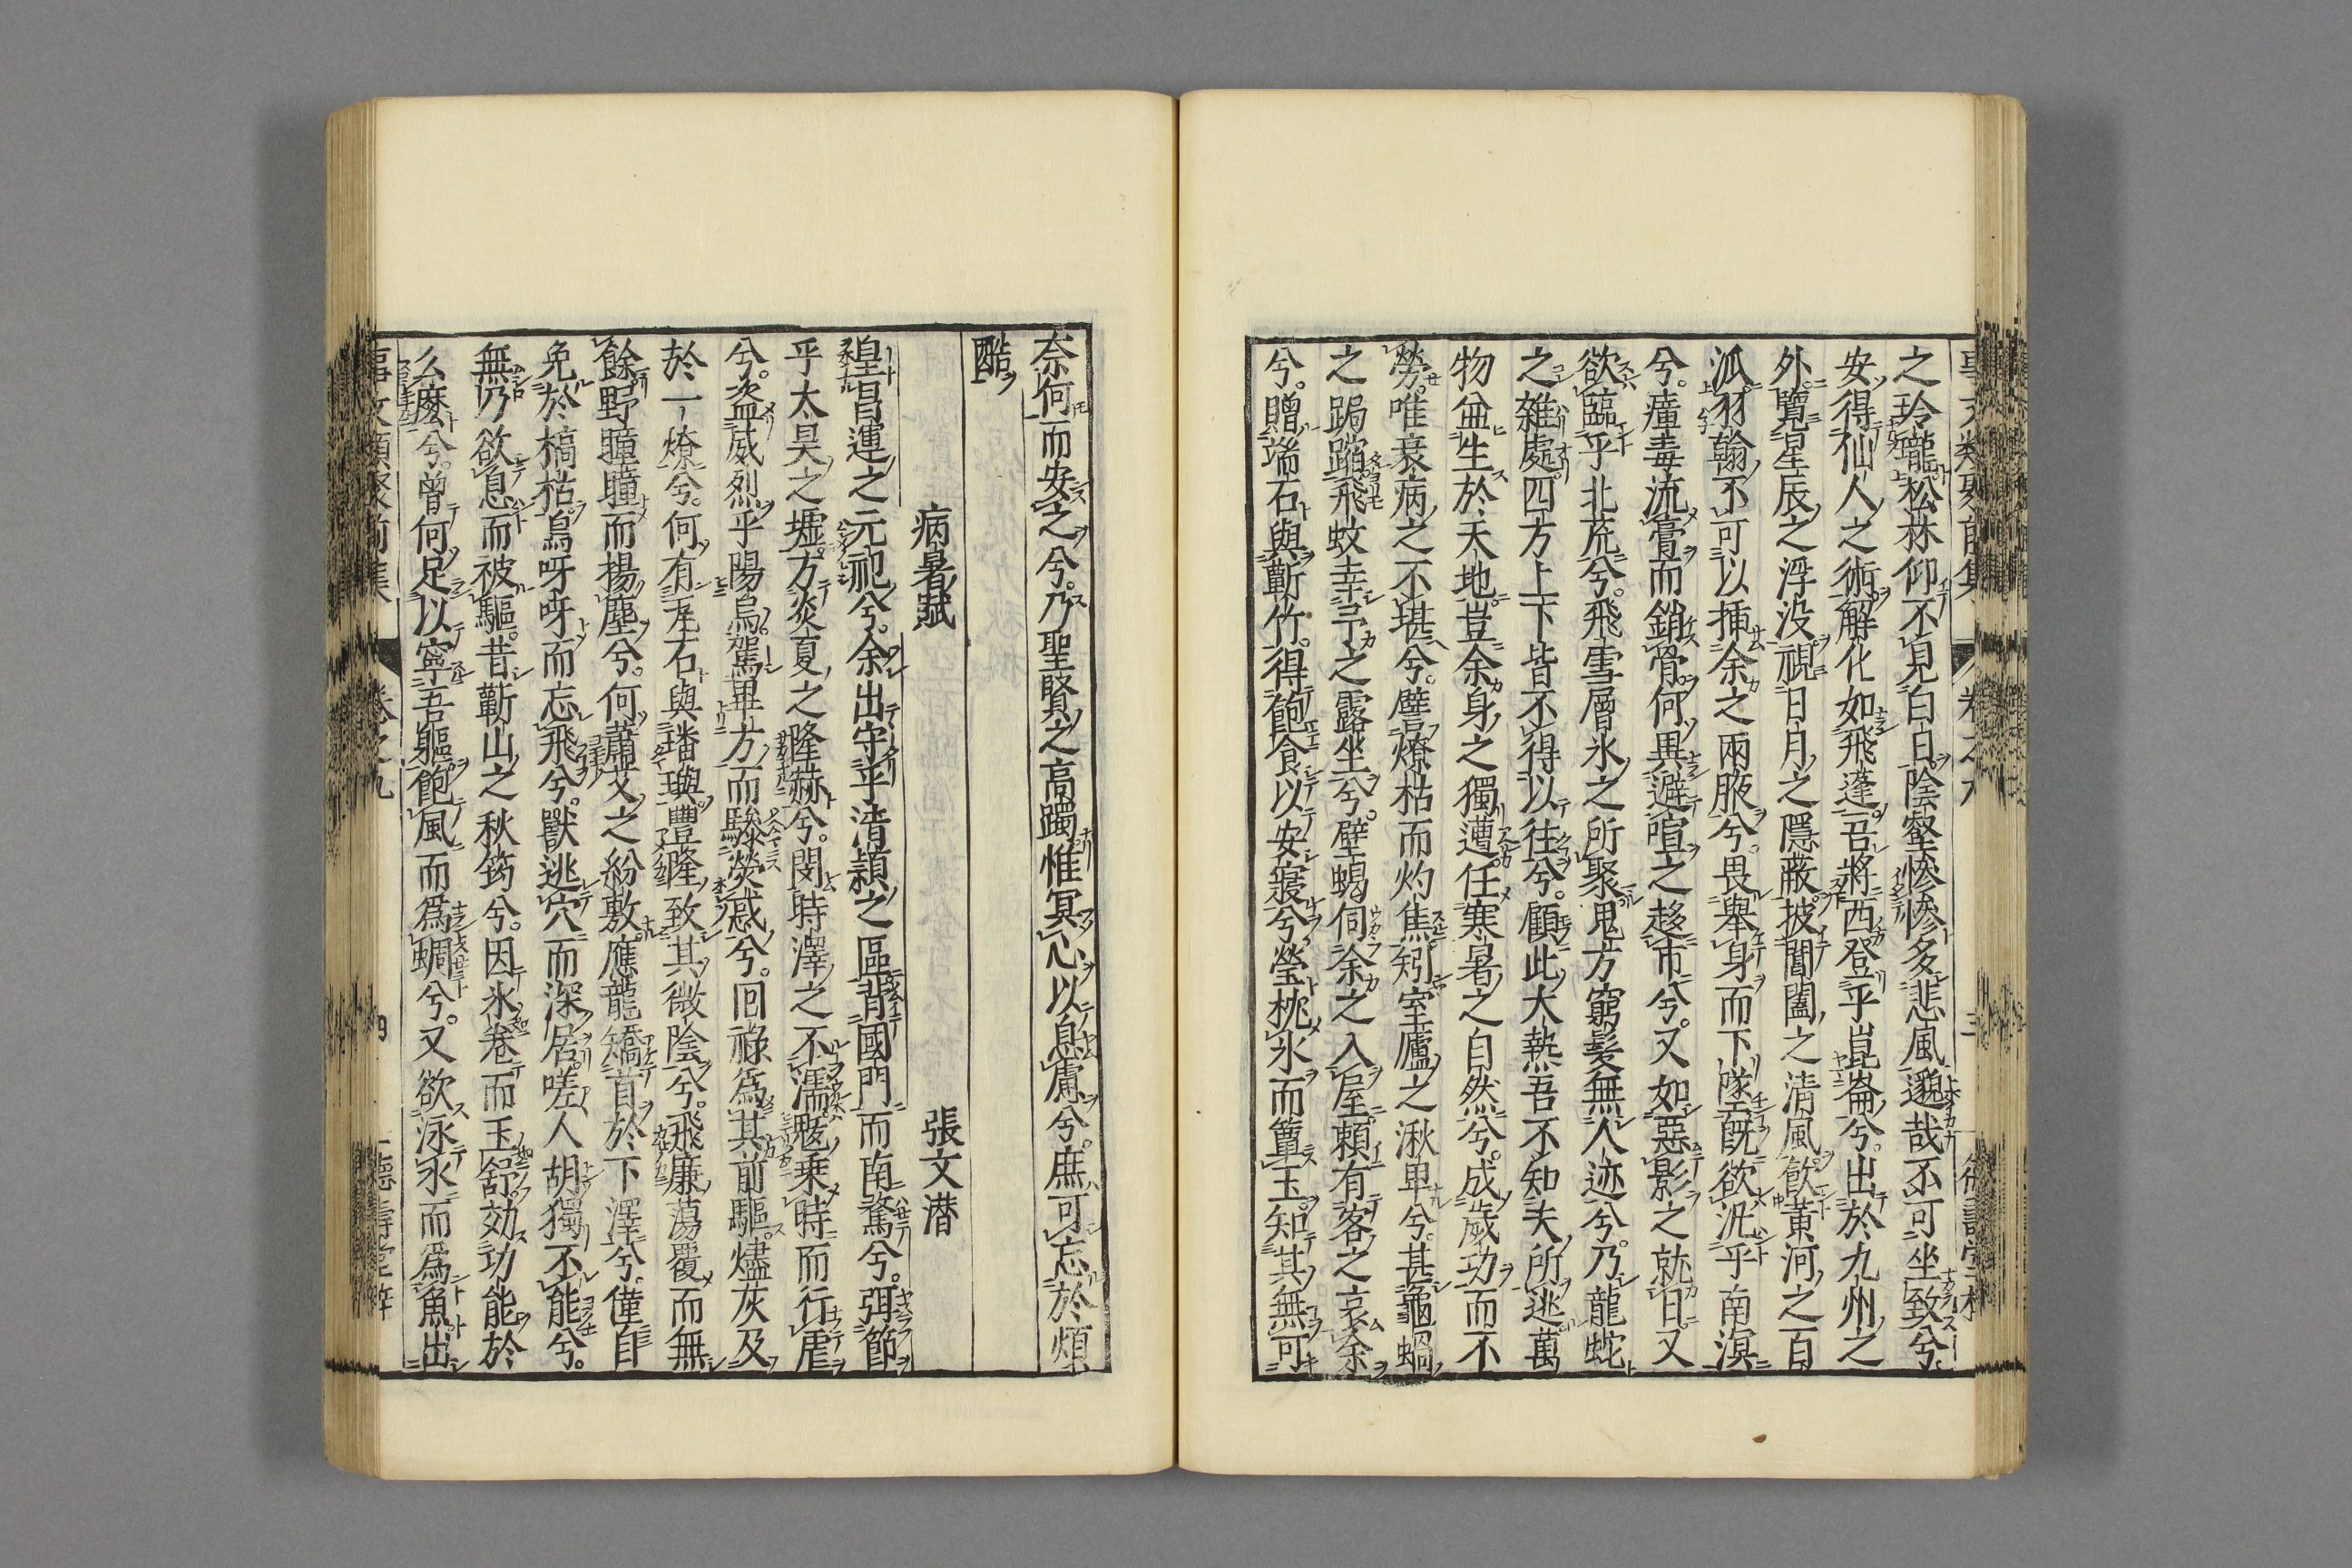 之玲瓏松林仰不見白日陰壑慘慘多悲風邈哉不可坐致兮
安得仙人之術解化如飛蓬吾將西登乎崑崙兮出於九州之
外覽星辰之浮沒視日月之隱蔽披閶闔之清風飲黃河之百
泒羽翰不可以插余之兩腋兮畏舉身而下墜既欲泛乎南溟
兮瘴毒流膏而銷骨何異避喧之趍市兮又如惡影之就日又
欲臨乎北荒兮飛雪層氷之所聚鬼方窮髮無人迹兮乃龍蛇
之雜處四方上下皆不得以往兮顧此大熱吾不知夫所逃萬
物並生於天地豈余身之獨遭任寒暑之自然兮成歲功而不
勞唯衰病之不堪兮譬燎枯而灼焦矧室廬之湫卑兮甚龜蝸
之跼蹐飛蚊幸予之露坐兮壁蝎伺余之入屋賴有客之哀余
兮贈端石與蘄竹得飽食以安寢兮瑩枕氷而簟玉知其無可
奈何而安之兮乃聖賢之高躅惟冥心以息慮兮庶可忘於煩
酷
病暑賦 張文潛
皇昌運之元祀兮余出守乎清潁之區背國門而南騖兮弭節
乎太昊之墟方炎夏之隆赫兮閔時澤之不濡魃乘時而行虐
兮盜威烈乎陽烏駕畢方而驂熒惑兮囘祿爲其前驅燼灰及
於一燎兮何有瓦石與璠璵豐隆致其微陰兮飛廉蕩覆而無
餘野曈曈而楊塵兮何蕭艾之紛敷應龍矯首於下澤兮僅自
免於槁枯鳥呀呀而忘飛兮獸逃穴而深居嗟人胡獨不能兮
無乃欲息而被驅昔蘄山之秋筠兮因氷卷而玉舒効功能於
么麼兮曾何足以寧吾軀飽風而爲蜩兮又欲泳水而爲魚出
卷之九